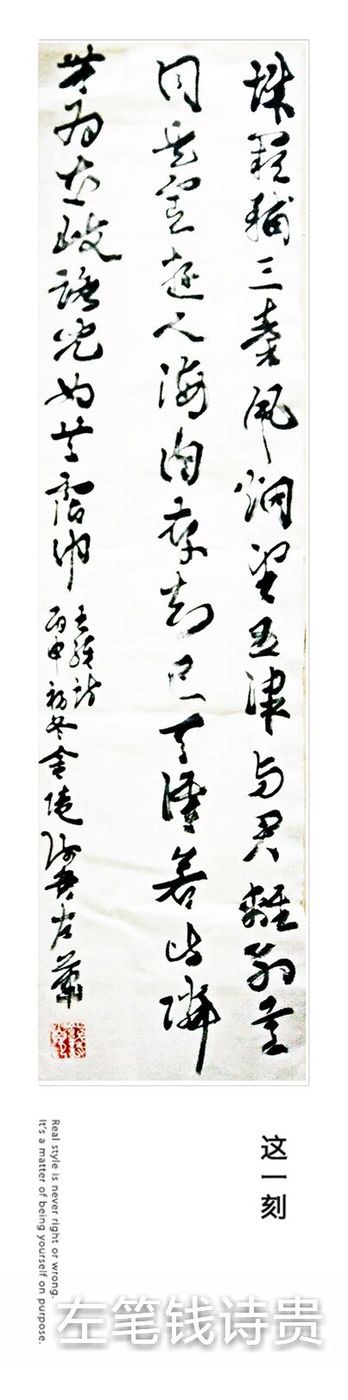 城阙輔三秦風烟望五津与君離别意
同是宦遊人海内存知己天涯若比隣
無为在岐路児女共霑巾
丙申初冬金陵
这一刻
Real style is never right or wrong.
It's a matter of being yourself on purpose.
左笔钱诗贵